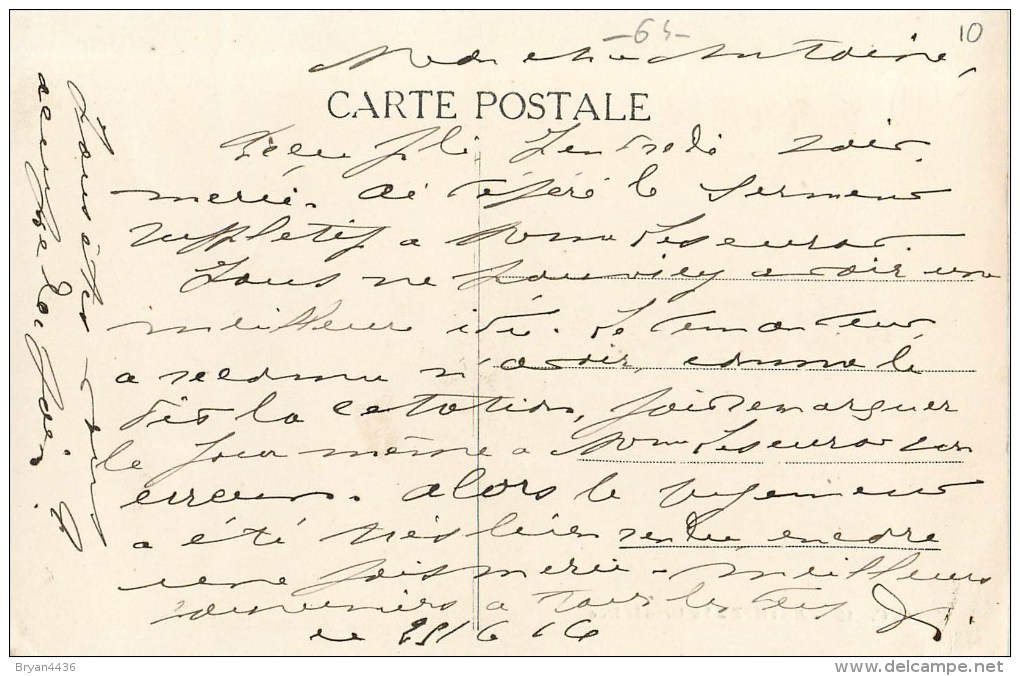 -64-
10
Mon cher Antoine,
CARTE POSTALE
Reçu pli Vendredi soir
merci. Ai déféré le Serment
suppletif a
Vous ne pouviez avoir une
meilleure idée. Le demandeur
a reconnu n'avoir, comme le
dis la citation, fais remarquer
le jour même a son
erreur. Alors le jugement
a été très bien rendu, encore
une fois merci - meilleurs
souvenirs a tous les tes
le 25/6 16
Bryan4436
delcampe.net